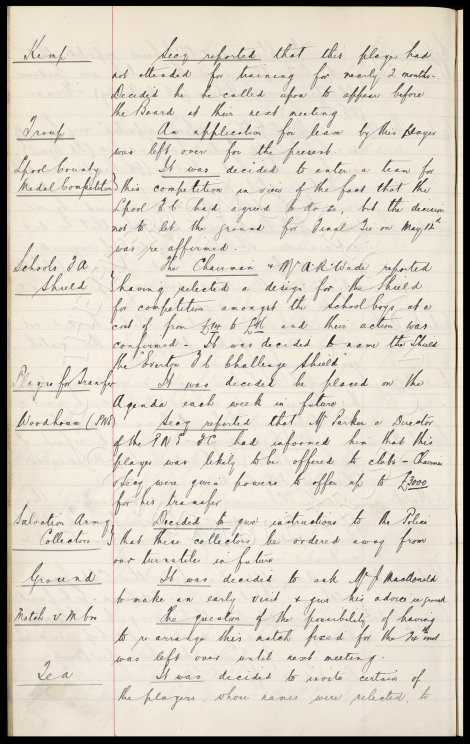 Kemp Secy reported that this player had
not attended for training for nearly 2 months.
Decided he be called upon to appear before
the Board at their next meeting
Troup An application for leave by this player
was left over for the present
Lpool County It was decided to enter a team for
Medal Competition this competition in view of the fact that the
Lpool F C had agreed to do so, but the decision
not to let the ground for Final Tie on May 12th
was re-affirmed.
Schools F A The Chairman & Mr A.R. Wade reported
Shield having selected a design for the Shield
for competition amongst the school boys at a
cost of from to and their action was
confirmed - It was decided to name the Shield
the "Everton F C Challenge Shield"
Players for Transfer It was decided be placed on the
Agenda each week in future
Woodhouse (PNE) Secy reported that Mr Parker a Director
of the P N E FC had informed him that this
player was likely to be offered to clubs - Chairman
& Secy were given powers to offer up to £3000
for his transfer
Salvation Army Decided to give instructions to the Police
Collectors that these collectors be ordered away from
our turnstiles in future
Ground It was decided to ask Mr J MacDonald
to make an early visit & give his advice re ground
Match v. M'bro The question of the possibility of having
to re-arrange this match fixed for the inst
was left over until next meeting.
Tea It was decided to invite certain of
the players, whose names were selected, to